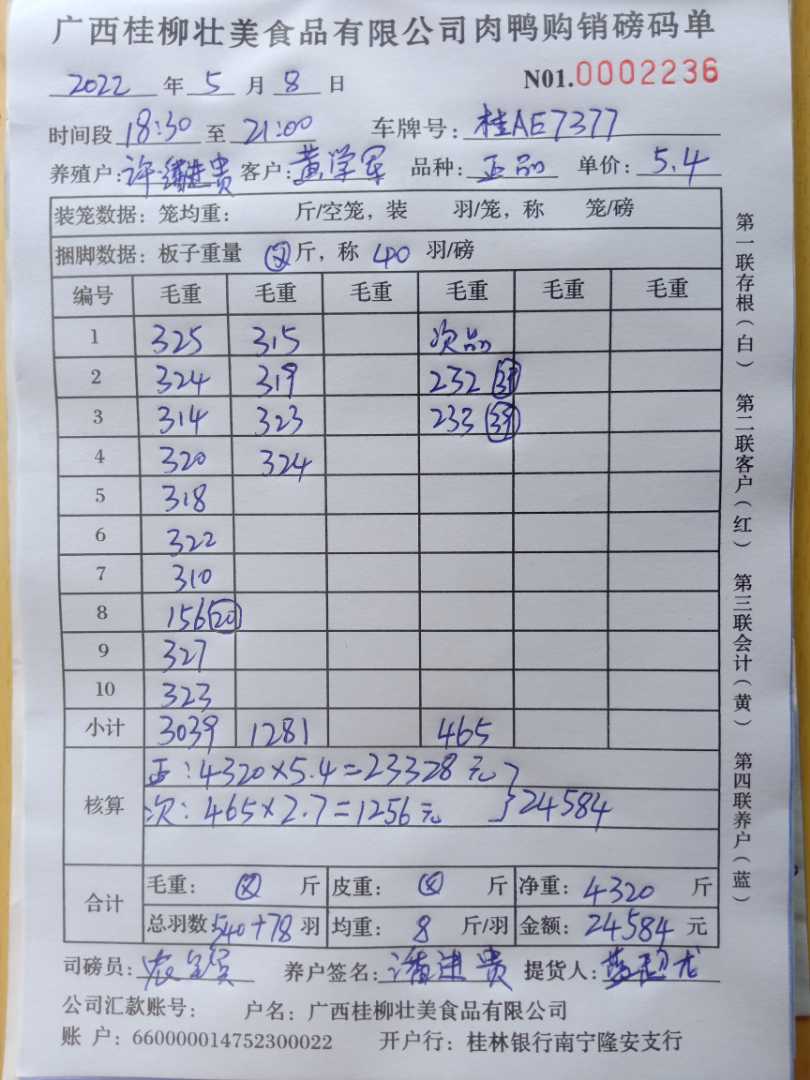 广西桂柳壮美食品有限公司肉鸭购销磅码单
2022 年 5 月 8 日 N01.0002236
时间段 18:30 至 21:00 车牌号: 桂AE7377
养殖户: 许进贵 客户: 黄学军 品种: 正品 单价: 5.4
装笼数据: 笼均重: 斤/空笼, 装 羽/笼, 称 笼/磅
捆脚数据: 板子重量 斤, 称 40 羽/磅
编号 毛重 毛重 毛重 毛重 毛重 毛重
1 325 315 次品
2 324 319 232 39
3 314 323 233 39
4 320 324
5 318
6 322
7 310
8 156 20
9 327
10 323
小计 3039 1281 465
核算 正:4320×5.4=23328元
次:465×2.7=1256元 } 24584
合计 毛重: 斤 皮重: 斤 净重: 4320 斤
总羽数 540+78 羽 均重: 8 斤/羽 金额: 24584 元
司磅员: 养户签名: 许进贵 提货人:
公司汇款账号: 户名: 广西桂柳壮美食品有限公司
账 户: 660000014752300022 开户行: 桂林银行南宁隆安支行
第一联存根(白) 第二联客户(红) 第三联会计(黄) 第四联养户(蓝)